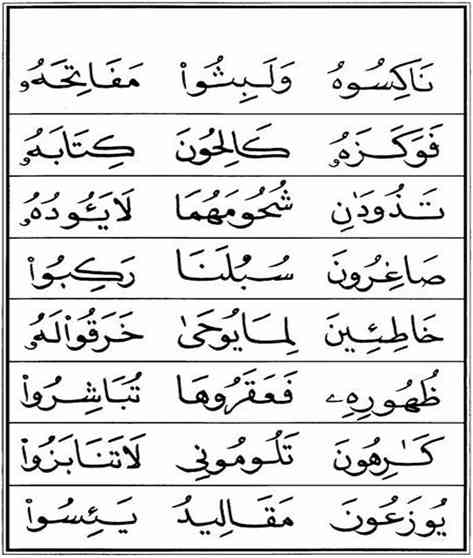 نَاكِسُوهُ وَلَبِثُوا۟ مَفَاتِحَهُۥ
فَوَكَزَهُۥ كَالِحُونَ كِتَابَهُۥ
تَذُودَٰنِ شُحُومَهُمَا لَا يَـُٔودُهُۥ
صَاغِرُونَ سُبُلَنَا رَكِبُوا۟
خَاطِئِينَ لِمَا يُوحَىٰ خَرَقُوا۟ لَهُۥ
ظُهُورِهِۦ فَعَقَرُوهَا تُبَاشِرُوا۟
كَـٰرِهُونَ تَلُومُونِي لَا تَنَابَزُوا۟
يُوزَعُونَ مَقَالِيدُ يَئِسُوا۟